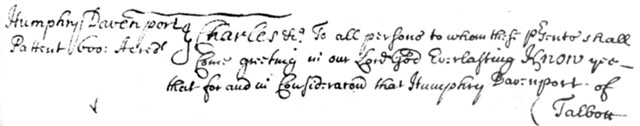 Humphry Davenport
Pattent 600: Acres
Charles &ca To all persons to whom these p'sents shall
Come greeting in our Lord God Everlasting Know yee
that for and in Consideration that Humphry Davenport of
Talbott